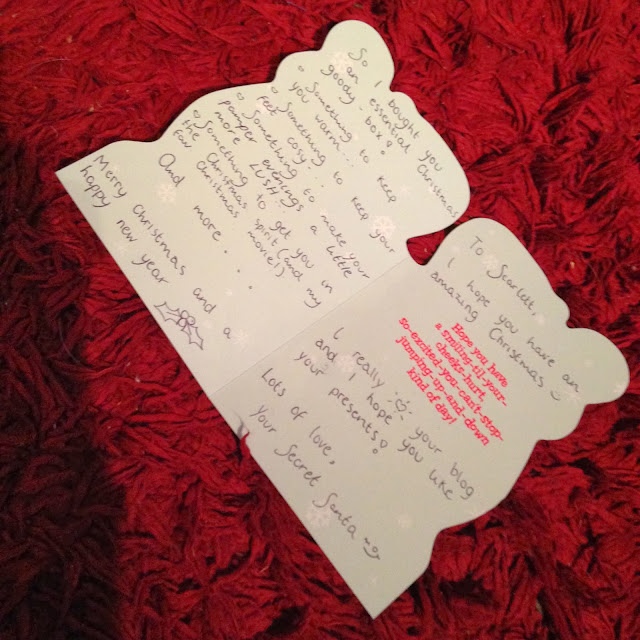 To Scarlett,
I hope you have an
amazing Christmas
Hope you have
a smile-'til-your-
cheeks-hurt,
so-excited-you-can't-stop-
jumping-up-and-down
kind of day!
I really ♡ your blog
and I hope you like
your presents!
Lots of love,
Your Secret Santa
So I bought you
an essential Christmas
goody box!
Something to keep
you warm..
Something to keep your
Something to make your
paper writings a little
more festive
Something to get you in
Christmas spirit (and my
fav Christmas movie)
And more...
Merry Christmas and a
happy new year